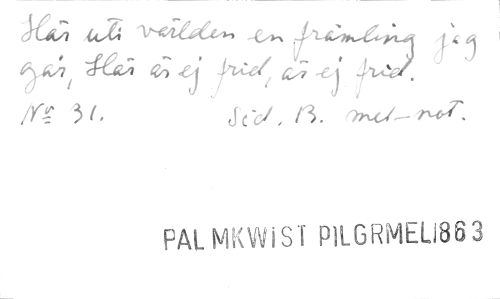 Här uti världen en främling jag
går, Här är ej frid, är ej frid.
Nr 31. Sid. 13. mel-not.
PALMKWIST PILGRMEL1863